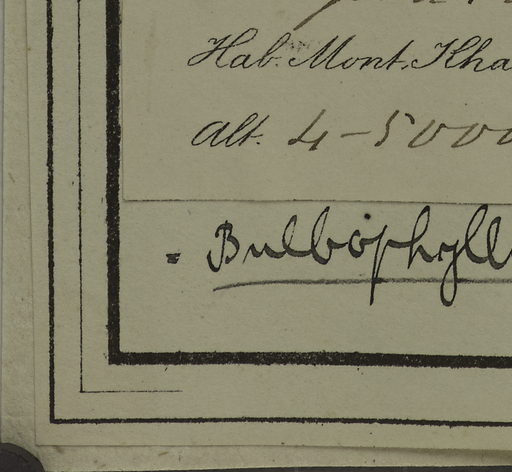 Hab. Mont. Kha
Alt. 4-5000
= Bulbophyll